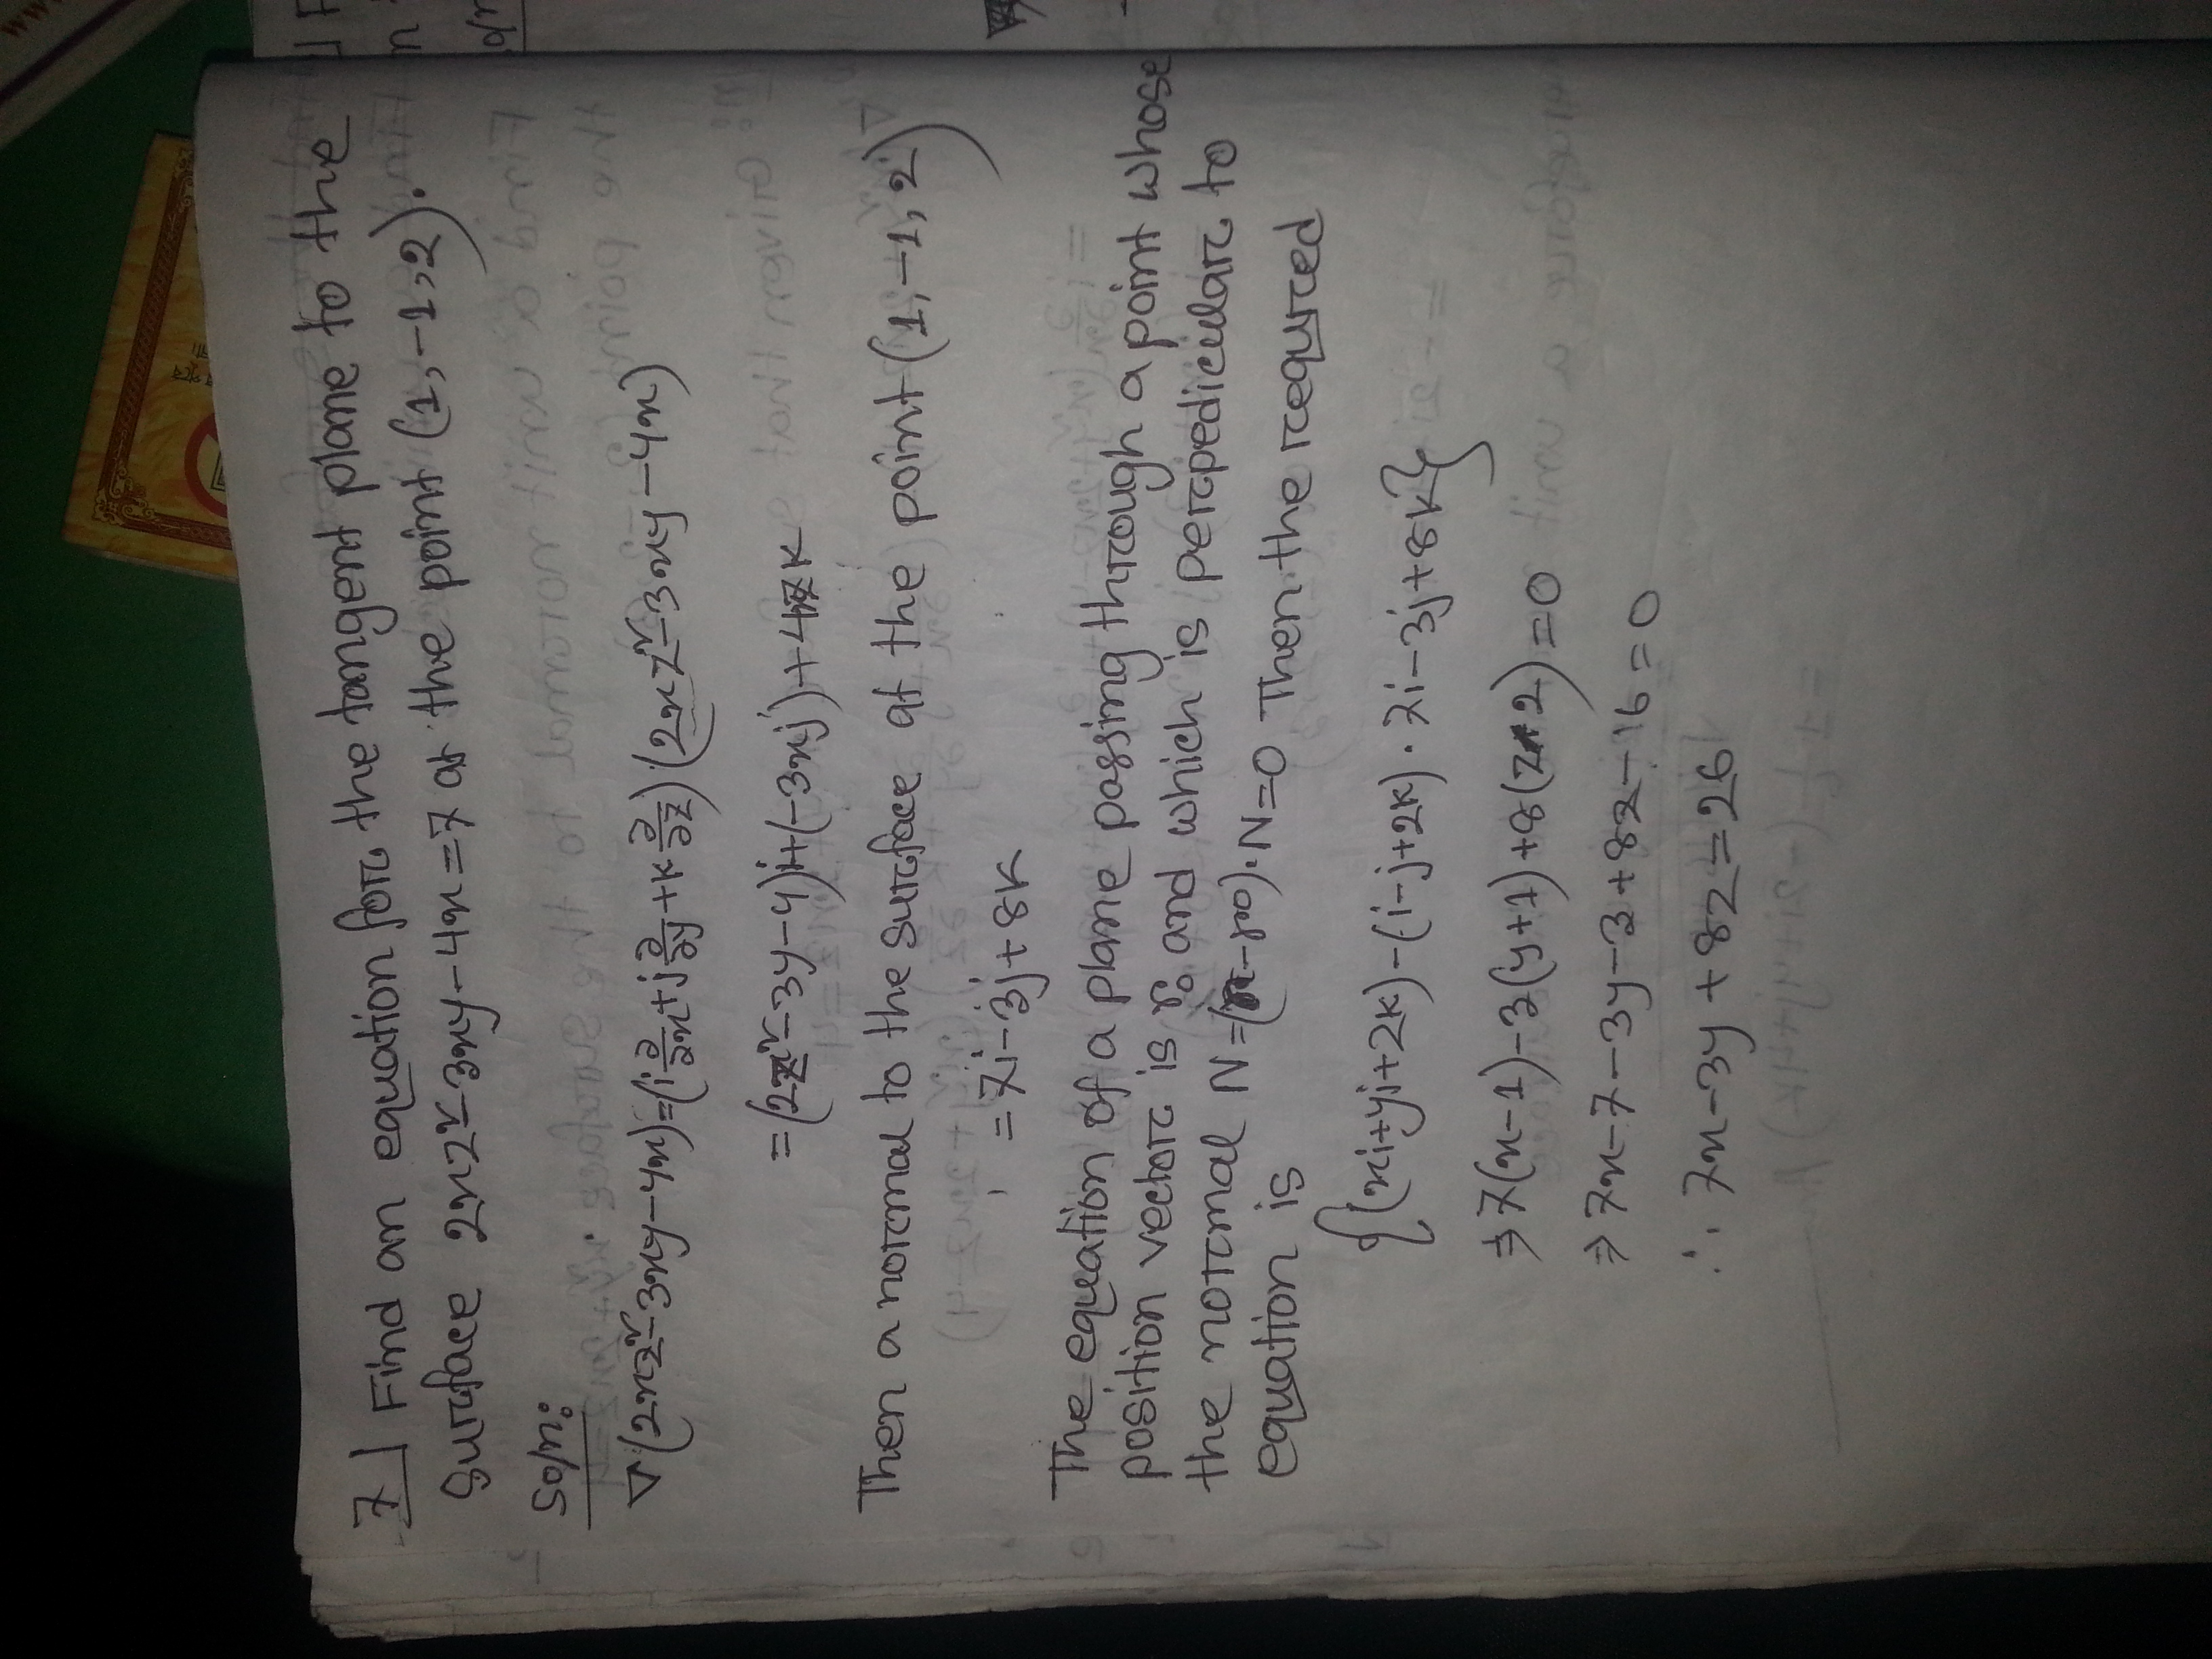 7] Find an equation for the tangent plane to the
surface 2xz²-3xy-4x=7 at the point (1,-1,2).
Soln:
∇(2xz²-3xy-4x)=(i ∂/∂x+j ∂/∂y+k ∂/∂z)(2xz²-3xy-4x)
=(2z²-3y-4)i+(-3xj)+4xzk
Then a normal to the surface at the point (1,-1,2)
=7i-3j+8k
The equation of a plane passing through a point whose
position vector is r₀ and which is perpedicular to
the normal N=(r-r₀).N=0 Then the requred
equation is
{(xi+yj+2k)-(i-j+2k).7i-3j+8k}
⇒7(x-1)-3(y+1)+8(z-2)=0
⇒7x-7-3y-3+8z-16=0
∴ 7x-3y+8z=26